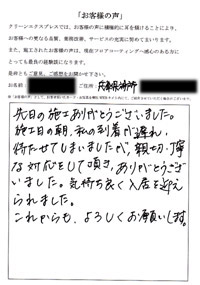 「お客様の声」
クリーンエクスプレスでは、お客様の声に積極的に耳を傾けることにより、
お客様への更なる品質、業務改善、サービスの充実に努めて参ります。
また、施工されたお客様の声は、現在フロアコーティングへ感心のある方に
とっても最良の経験談になります。
是非ともご意見、ご感想をお聞かせ下さい。
お名前
ご住所
兵庫県
先日の施工ありがとうございました。
施工日の朝、私の到着が遅れ、
待たせてしまいましたが、親切・丁寧
な対応をして頂き、ありがとうござ
いました。気持ち良く入居を迎え
られました。
これからも、よろしくお願いします。